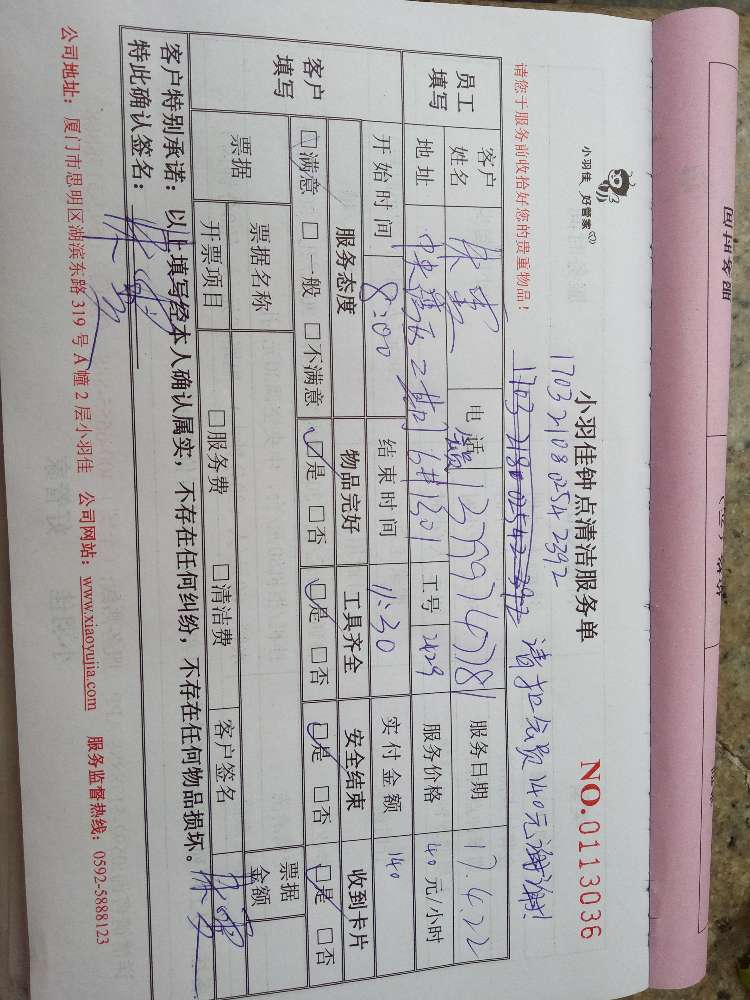 小羽佳 好管家
小羽佳钟点清洁服务单
NO.0113036
17032108 0254 2392
请扣会员140元谢谢!
请您于服务前收拾好您的贵重物品!
员工填写
客户姓名
电话
服务日期 17.4.22
地址
2期6#1301
工号 2429
服务价格 40 元/小时
开始时间 8:00
结束时间 11:30
实付金额 140
客户填写
服务态度 物品完好 工具齐全 安全结束 收到卡片
☑满意 □一般 □不满意 ☑是 □否 ☑是 □否 ☑是 □否 ☑是 □否
票据
票据名称
票据金额
开票项目 □服务费 □清洁费 客户签名
客户特别承诺：以上填写经本人确认属实，不存在任何纠纷，不存在任何物品损坏。
特此确认签名：
公司地址：厦门市思明区湖滨东路 319 号 A 幢 2 层小羽佳 公司网站：www.xiaoyujia.com 服务监督热线：0592-5888123